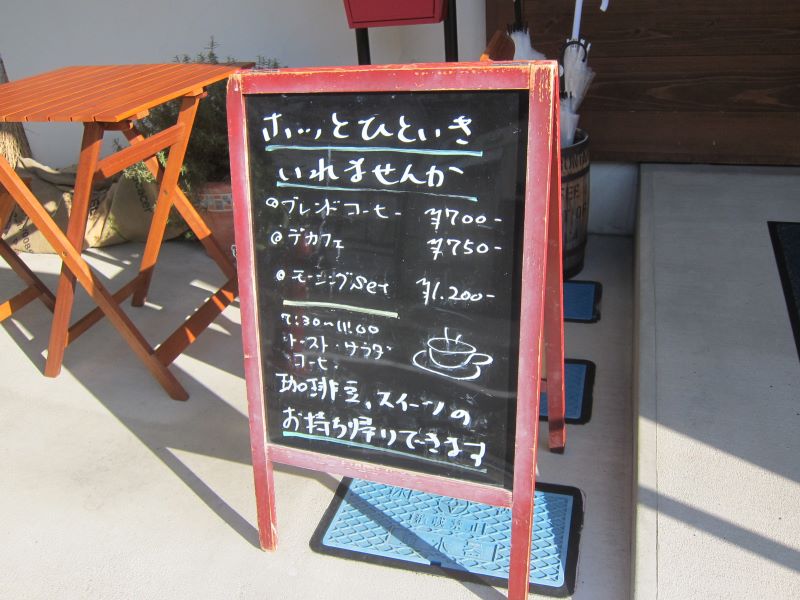 ホッとひといき
いれませんか
◎ブレンドコーヒー ¥700-
◎デカフェ ¥750-
◎モーニングset ¥1.200-
7:30~11:00
トースト・サラダ
コーヒー
珈琲豆、スイーツの
お持ち帰りできます